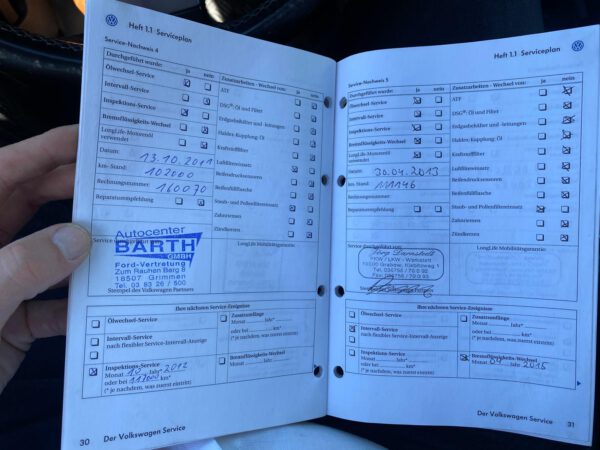 Heft 1.1 Serviceplan
Service-Nachweis 4
Durchgeführt wurde: ja nein
Ölwechsel-Service
Intervall-Service
Inspektions-Service
Bremsflüssigkeits-Wechsel
LongLife-Motorenöl verwendet
Datum: 13.10.2011
km-Stand: 102000
Rechnungsnummer: 160070
Reparaturempfehlung
Zusatzarbeiten - Wechsel von: ja nein
ATF
DSG®-Öl und Filter
Erdgasbehälter und -leitungen
Haldex-Kupplung-Öl
Kraftstofffilter
Luftfiltereinsatz
Reifendrucksensoren
Reifenfüllflasche
Staub- und Pollenfiltereinsatz
Zahnriemen
Zündkerzen
Service durchgeführt von:
LongLife Mobilitätsgarantie:
Autocenter
BARTH
GMBH
Ford-Vertretung
Zum Rauhen Berg 8
18507 Grimmen
Stempel des Volkswagen Partners
Ihre nächsten Service-Ereignisse
Ölwechsel-Service
Intervall-Service
nach flexibler Service-Intervall-Anzeige
Inspektions-Service
Monat 10 Jahr* 2012
oder bei 117000 km*
(* je nachdem, was zuerst eintritt)
Zusatzumfänge
Monat Jahr*
oder bei km*
(* je nachdem, was zuerst eintritt)
Bremsflüssigkeits-Wechsel
Monat Jahr
30 Der Volkswagen Service
Heft 1.1 Serviceplan
Service-Nachweis 5
Durchgeführt wurde: ja nein
Ölwechsel-Service
Intervall-Service
Inspektions-Service
Bremsflüssigkeits-Wechsel
LongLife-Motorenöl verwendet
Datum: 30.04.2013
km-Stand: 111146
Rechnungsnummer:
Reparaturempfehlung
Zusatzarbeiten - Wechsel von: ja nein
ATF
DSG®-Öl und Filter
Erdgasbehälter und -leitungen
Haldex-Kupplung-Öl
Kraftstofffilter
Luftfiltereinsatz
Reifendrucksensoren
Reifenfüllflasche
Staub- und Pollenfiltereinsatz
Zahnriemen
Zündkerzen
Service durchgeführt von:
LongLife Mobilitätsgarantie:
PKW / LKW - Werkstatt
Ihre nächsten Service-Ereignisse
Ölwechsel-Service
Intervall-Service
nach flexibler Service-Intervall-Anzeige
Inspektions-Service
Monat Jahr*
oder bei km*
(* je nachdem, was zuerst eintritt)
Zusatzumfänge
Monat Jahr*
oder bei km*
(* je nachdem, was zuerst eintritt)
Bremsflüssigkeits-Wechsel
Monat 04 Jahr 2015
Der Volkswagen Service 31